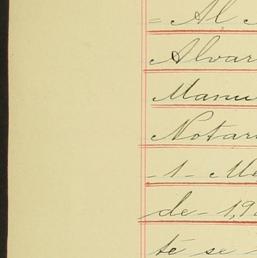 = Al
Alvar
Manu
Notar
- 1 - Me
de - 1,9
té se